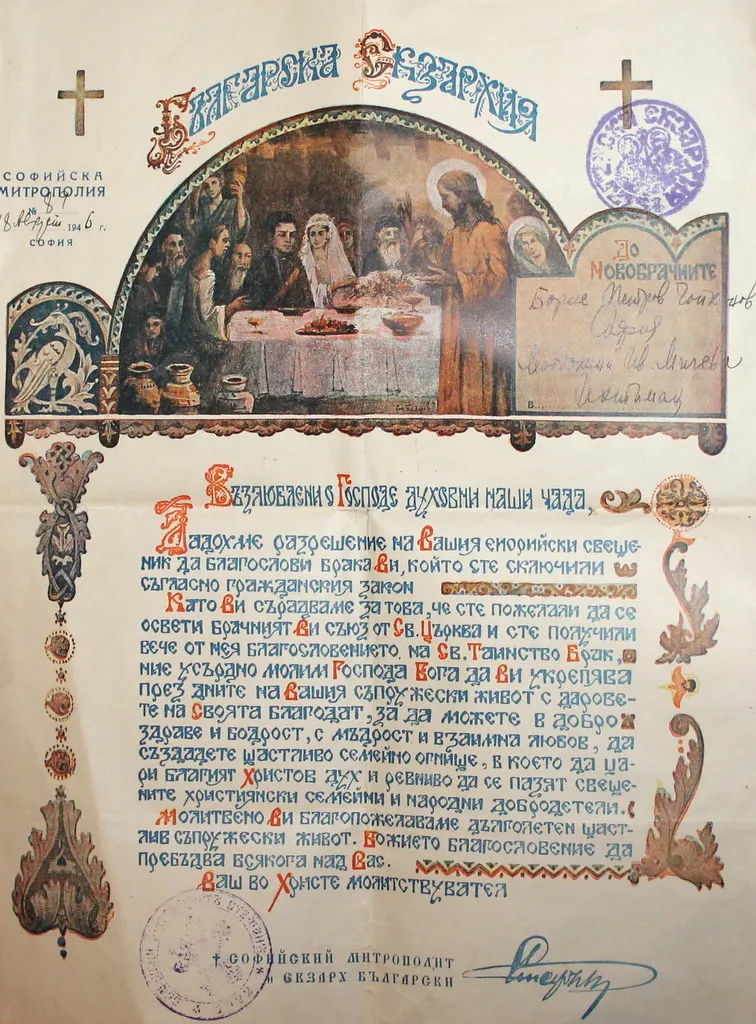 Българска Екзархия
СОФИЙСКА
МИТРОПОЛИЯ
№ 87
18 Август 1946 г.
СОФИЯ
До
Новобрачните
Борис Петров
София
Ив. Мичева
Ихтиман
Възлюблени о Господе духовни наши чада,
Дадохме разрешение на Вашия енорийски свеще-
ник да благослови брака Ви, който сте сключили
съгласно гражданския закон
Като Ви сърадваме за това, че сте пожелали да се
освети брачният Ви съюз от Св. Църква и сте получили
вече от нея благословението на Св. Таинство Брак,
ние усърдно молим Господа Бога да Ви укрепява
през дните на Вашия съпружески живот с дарове-
те на Своята благодат, за да можете в добро
здраве и бодрост, с мъдрост и взаимна любов, да
създадете щастливо семейно огнище, в което да ца-
ри благият Христов дух и ревниво да се пазят свеще-
ните християнски семейни и народни добродетели.
Молитвено Ви благопожелаваме дълголетен щаст-
лив съпружески живот. Божието благословение да
пребъдва всякога над Вас.
Ваш во Христе молитствувател
† СОФИЙСКИЙ МИТРОПОЛИТ
И ЕКЗАРХ БЪЛГАРСКИ